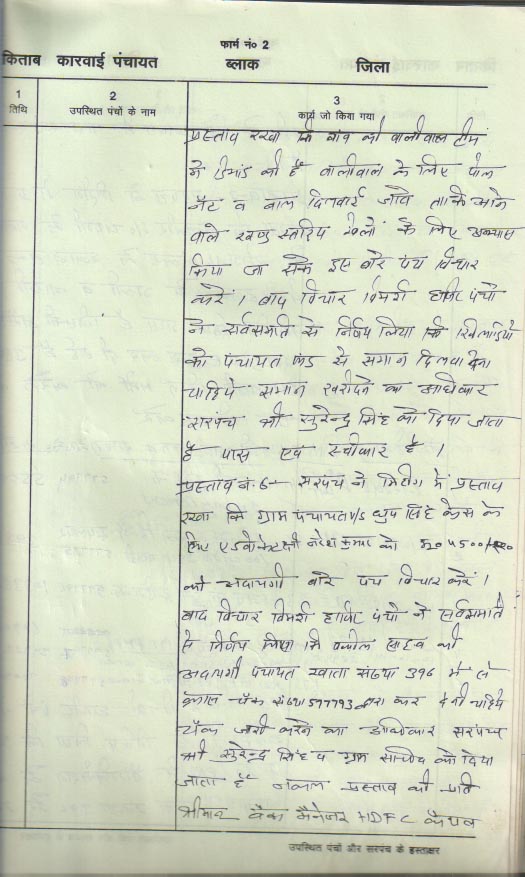 फार्म नं० 2
किताब कारवाई पंचायत ब्लाक जिला
1 2 3
तिथि उपस्थित पंचों के नाम कार्य जो किया गया
प्रस्ताव रखा कि गांव की वालीवाल टीम
ने डिमांड की है वालीवाल के लिए पोल
नेट व बाल दिलवाई जावे ताकि आने
वाले खण्ड स्तरिय खेलों के लिए अभ्यास
किया जा सके इस बारे पंच विचार
करें। बाद विचार विमर्श हाजिर पंचो
ने सर्वसमति से निर्णय लिया कि खिलाडियो
को पंचायत फंड से समान दिलवा देना
चाहिये समान खरीदने का अधिकार
सरपंच श्री सुरेन्द्र सिंह को दिया जाता
है पास एवं स्वीकार है।
प्रस्ताव नं. 6- सरपंच ने मिटींग में प्रस्ताव
रखा कि ग्राम पंचायत v/s धुप सिंह केस के
लिए एडवोकेट श्री नरेश कुमार को रू० 4500/-
की अदायगी बारे पंच विचार करें।
बाद विचार विमर्श हाजिर पंचो ने सर्वसमति
से निर्णय लिया कि वकील साहब की
अदायगी पंचायत खाता संख्या 396 में से
चैक संख्या 597793 द्वारा कर देनी चाहिये
चैक जारी करने का अधिकार सरपंच
श्री सुरेन्द्र सिंह व ग्राम सचिव को दिया
जाता है नकल प्रस्ताव की प्रति
श्रीमान बैंक मैनेजर HDFC कैथल
उपस्थित पंचों और सरपंच के हस्ताक्षर